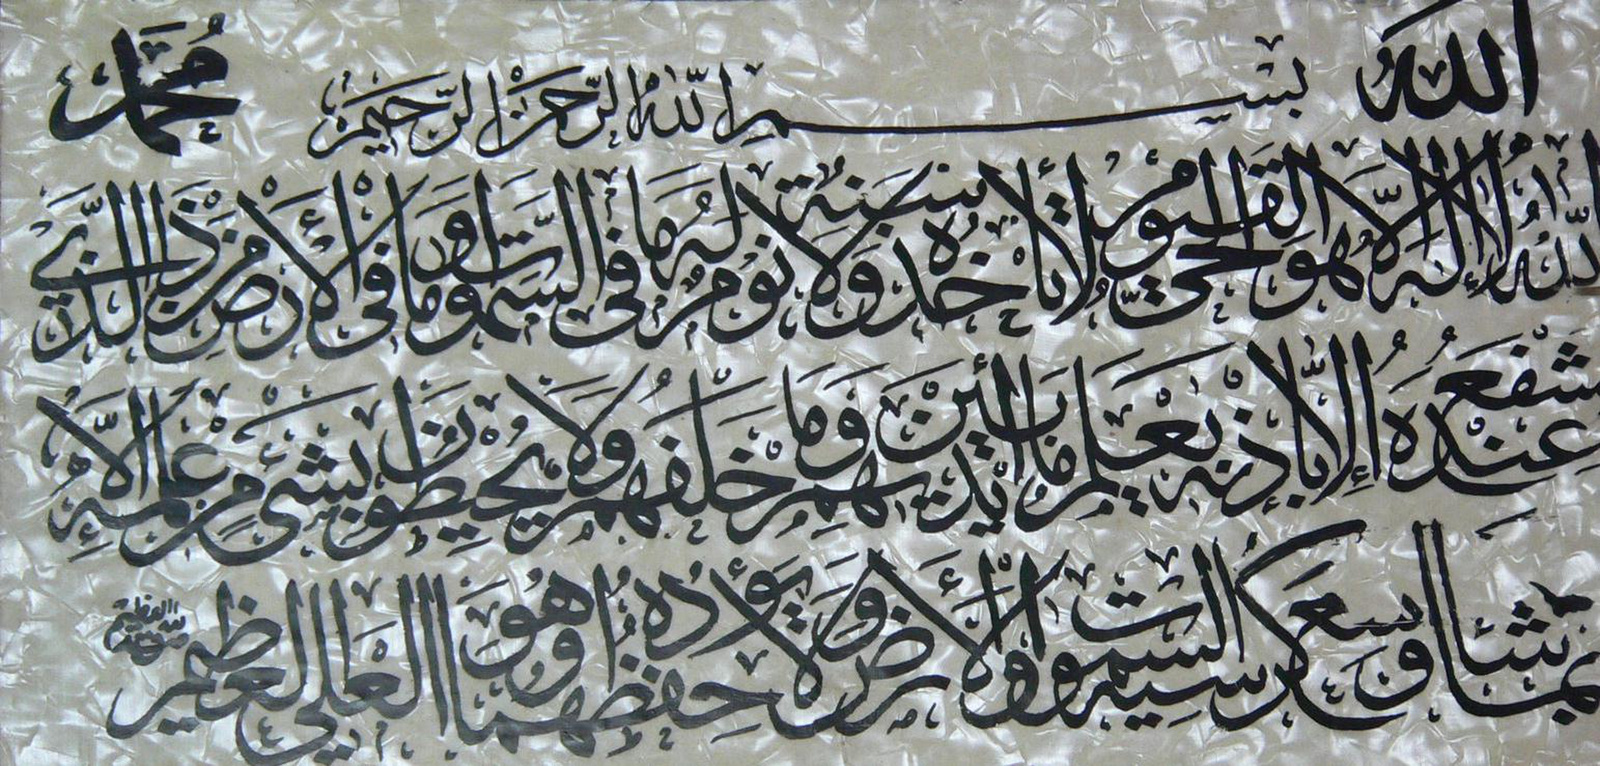 الله بسم الله الرحمن الرحيم محمد
الله لا إله إلا هو الحي القيوم لا تأخذه سنة ولا نوم له ما في السموت وما في الأرض من ذا الذي
يشفع عنده إلا بإذنه يعلم ما بين أيديهم وما خلفهم ولا يحيطون بشيء من علمه إلا
بما شاء وسع كرسيه السموت والأرض ولا يؤده حفظهما وهو العلي العظيم